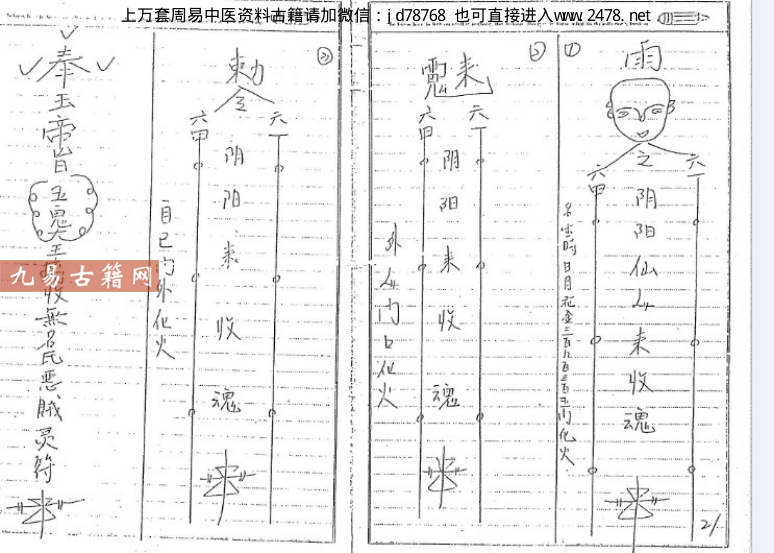 上万套周易中医资料古籍请加微信：jd78768 也可直接进入www.2478.net
①
雨
六丁
之阴阳仙人来收魂
六甲
日月
门化火
21
②
来
六丁
阴阳来收魂
六甲
外人门口化火
③
勅令
六丁
阴阳来收魂
六甲
自己门外化火
奉玉帝旨
五鬼
收無名氏恶贼灵符
九易古籍网